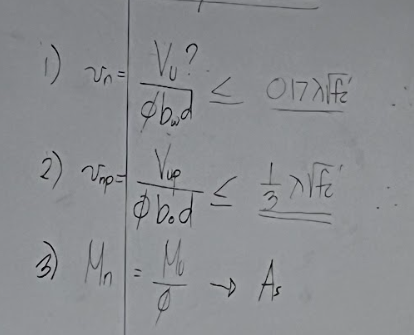 1) vn = Vu? / ϕbwd ≤ 0.17λ√fc'
2) vnp = Vup / ϕb₀d ≤ 1/3 λ√fc'
3) Mn = Mu / ϕ → As